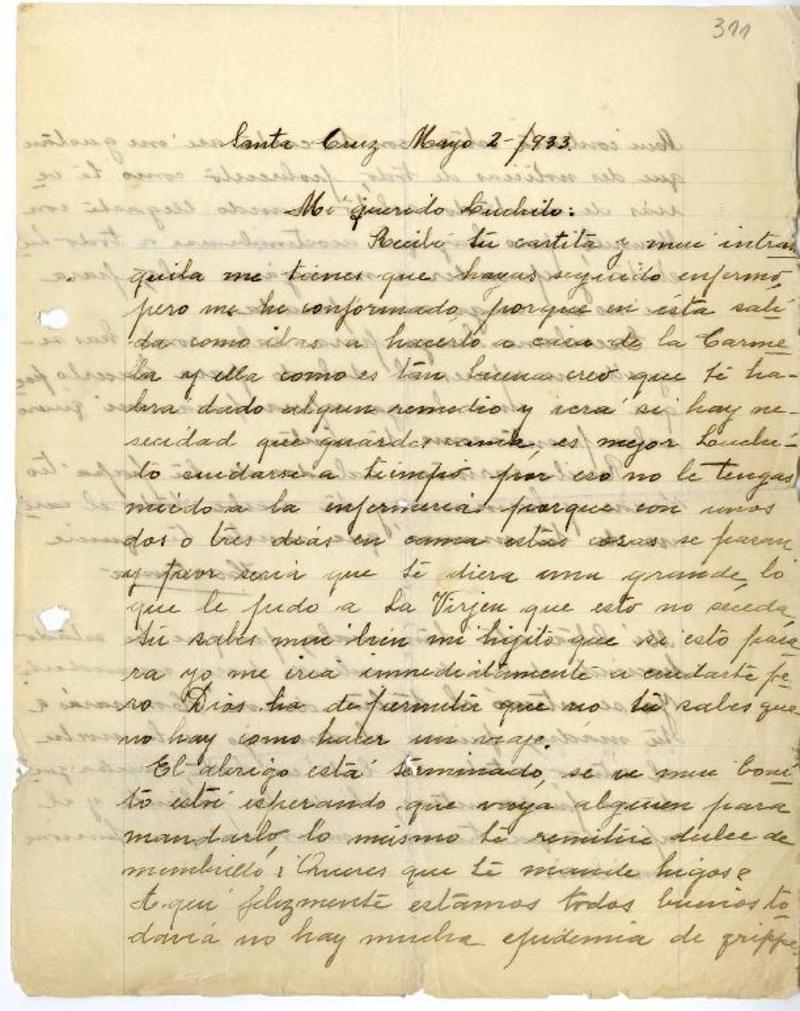 311
Santa Cruz Mayo 2-/933.
Mi querido Luchito:
Recibí tú cartita y mui intran
quila me tienes que hayas seguido enfermo,
pero me he conformado, porque en ésta sali
da como ibas a hacerlo a casa de la Carme
la y ella como es tan buena creo que té ha-
bra dado algun remedio y verá si hay ne-
secidad que guardes cama, es mejor Luchi-
to cuidarse a tiempo por eso no le tengas
miedo a la enfermeria porque con unos
dos o tres dias en cama estas cosas se paran
y peor seria que té diera una grande, lo
que le pido a La Virjen que esto no suceda,
tú sabes mui bien mi hijito que si esto pasa
ra yo me iria inmediatamente a cuidarte pe
ro Dios ha de permitir que no tú sabes que
no hay como hacer un viaje.
El abrigo está terminado, se ve mui boni
to estoi esperando que vaya alguien para
mandarló, lo mismo té remitiré dulce de
membrillo ¿Queres que té mande higos?
Aqui felizmente estamos todos buenos to
davia no hay mucha epidemia de grippe